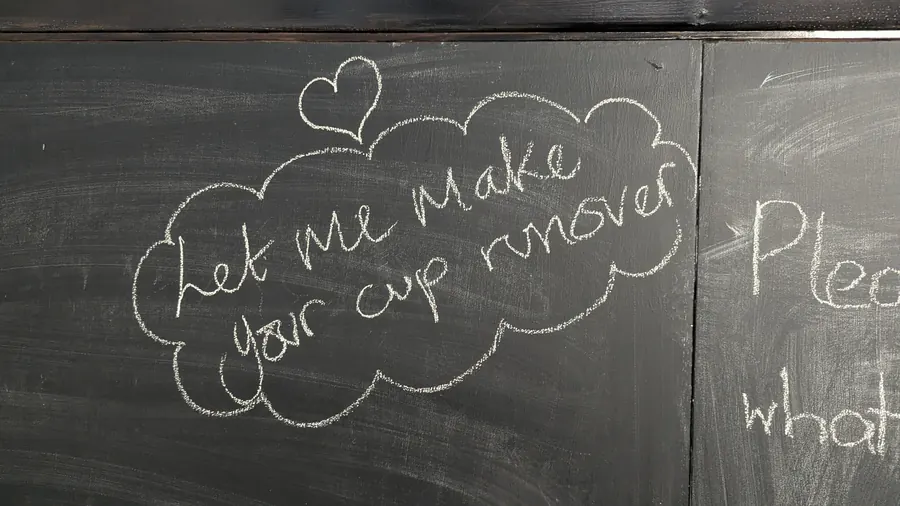 Let Me Make
your cup runover
Plea
what